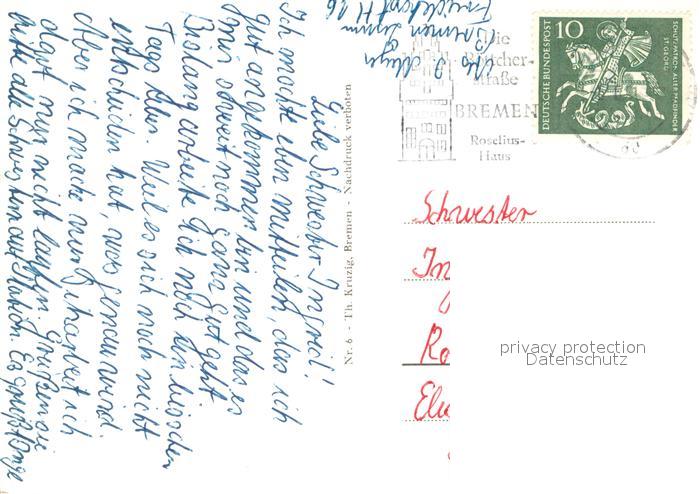 Liebe Schwester Ingrid!
Ich möchte Ihnen mitteilen, das ich
gut angekommen bin und das es
mir soweit noch ganz gut geht
Bislang arbeite ich noch ein bisschen
Tag über. Weil es sich noch nicht
entschieden hat, was genau wird
Aber ich mache nur
nur nicht laufen. Grüßen sie
bitte alle Schwestern auf Station. Es grüßt
Nr. 6 - Th. Kruzig, Bremen - Nachdruck verboten
Die
Böttcher-
straße
BREMEN
Roselius-
Haus
10
DEUTSCHE BUNDESPOST
ST. GEORG
SCHUTZPATRON ALLER PFADFINDER
Schwester
In
Ro
privacy protection
Datenschutz